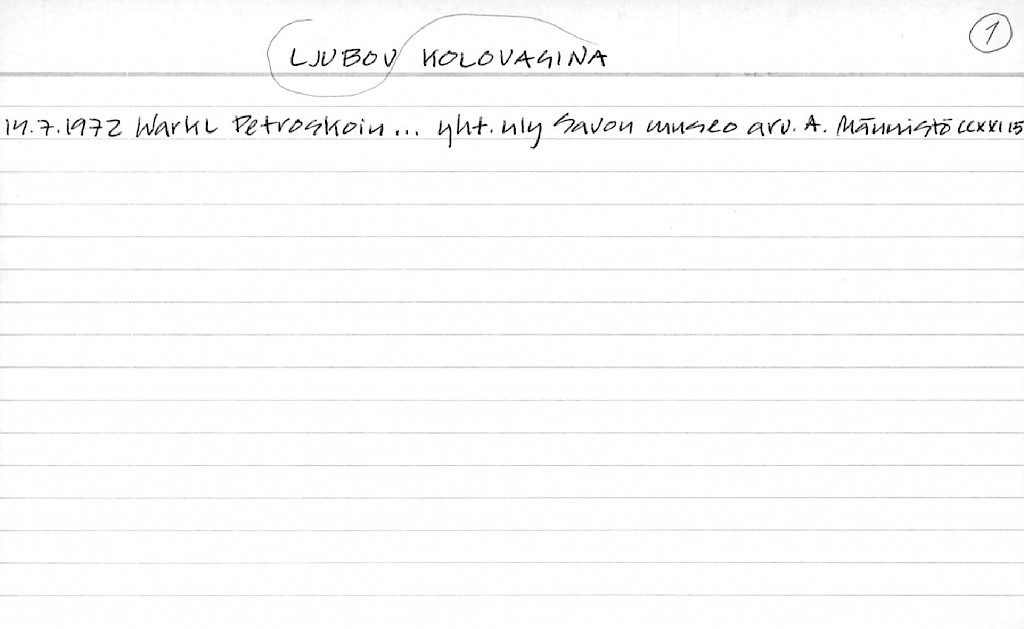 1
LJUBOV KOLOVAGINA
14.7.1972 WarkL Petroskoin... yht. nly Savon museo arv. A. Männistö CCXXI 15